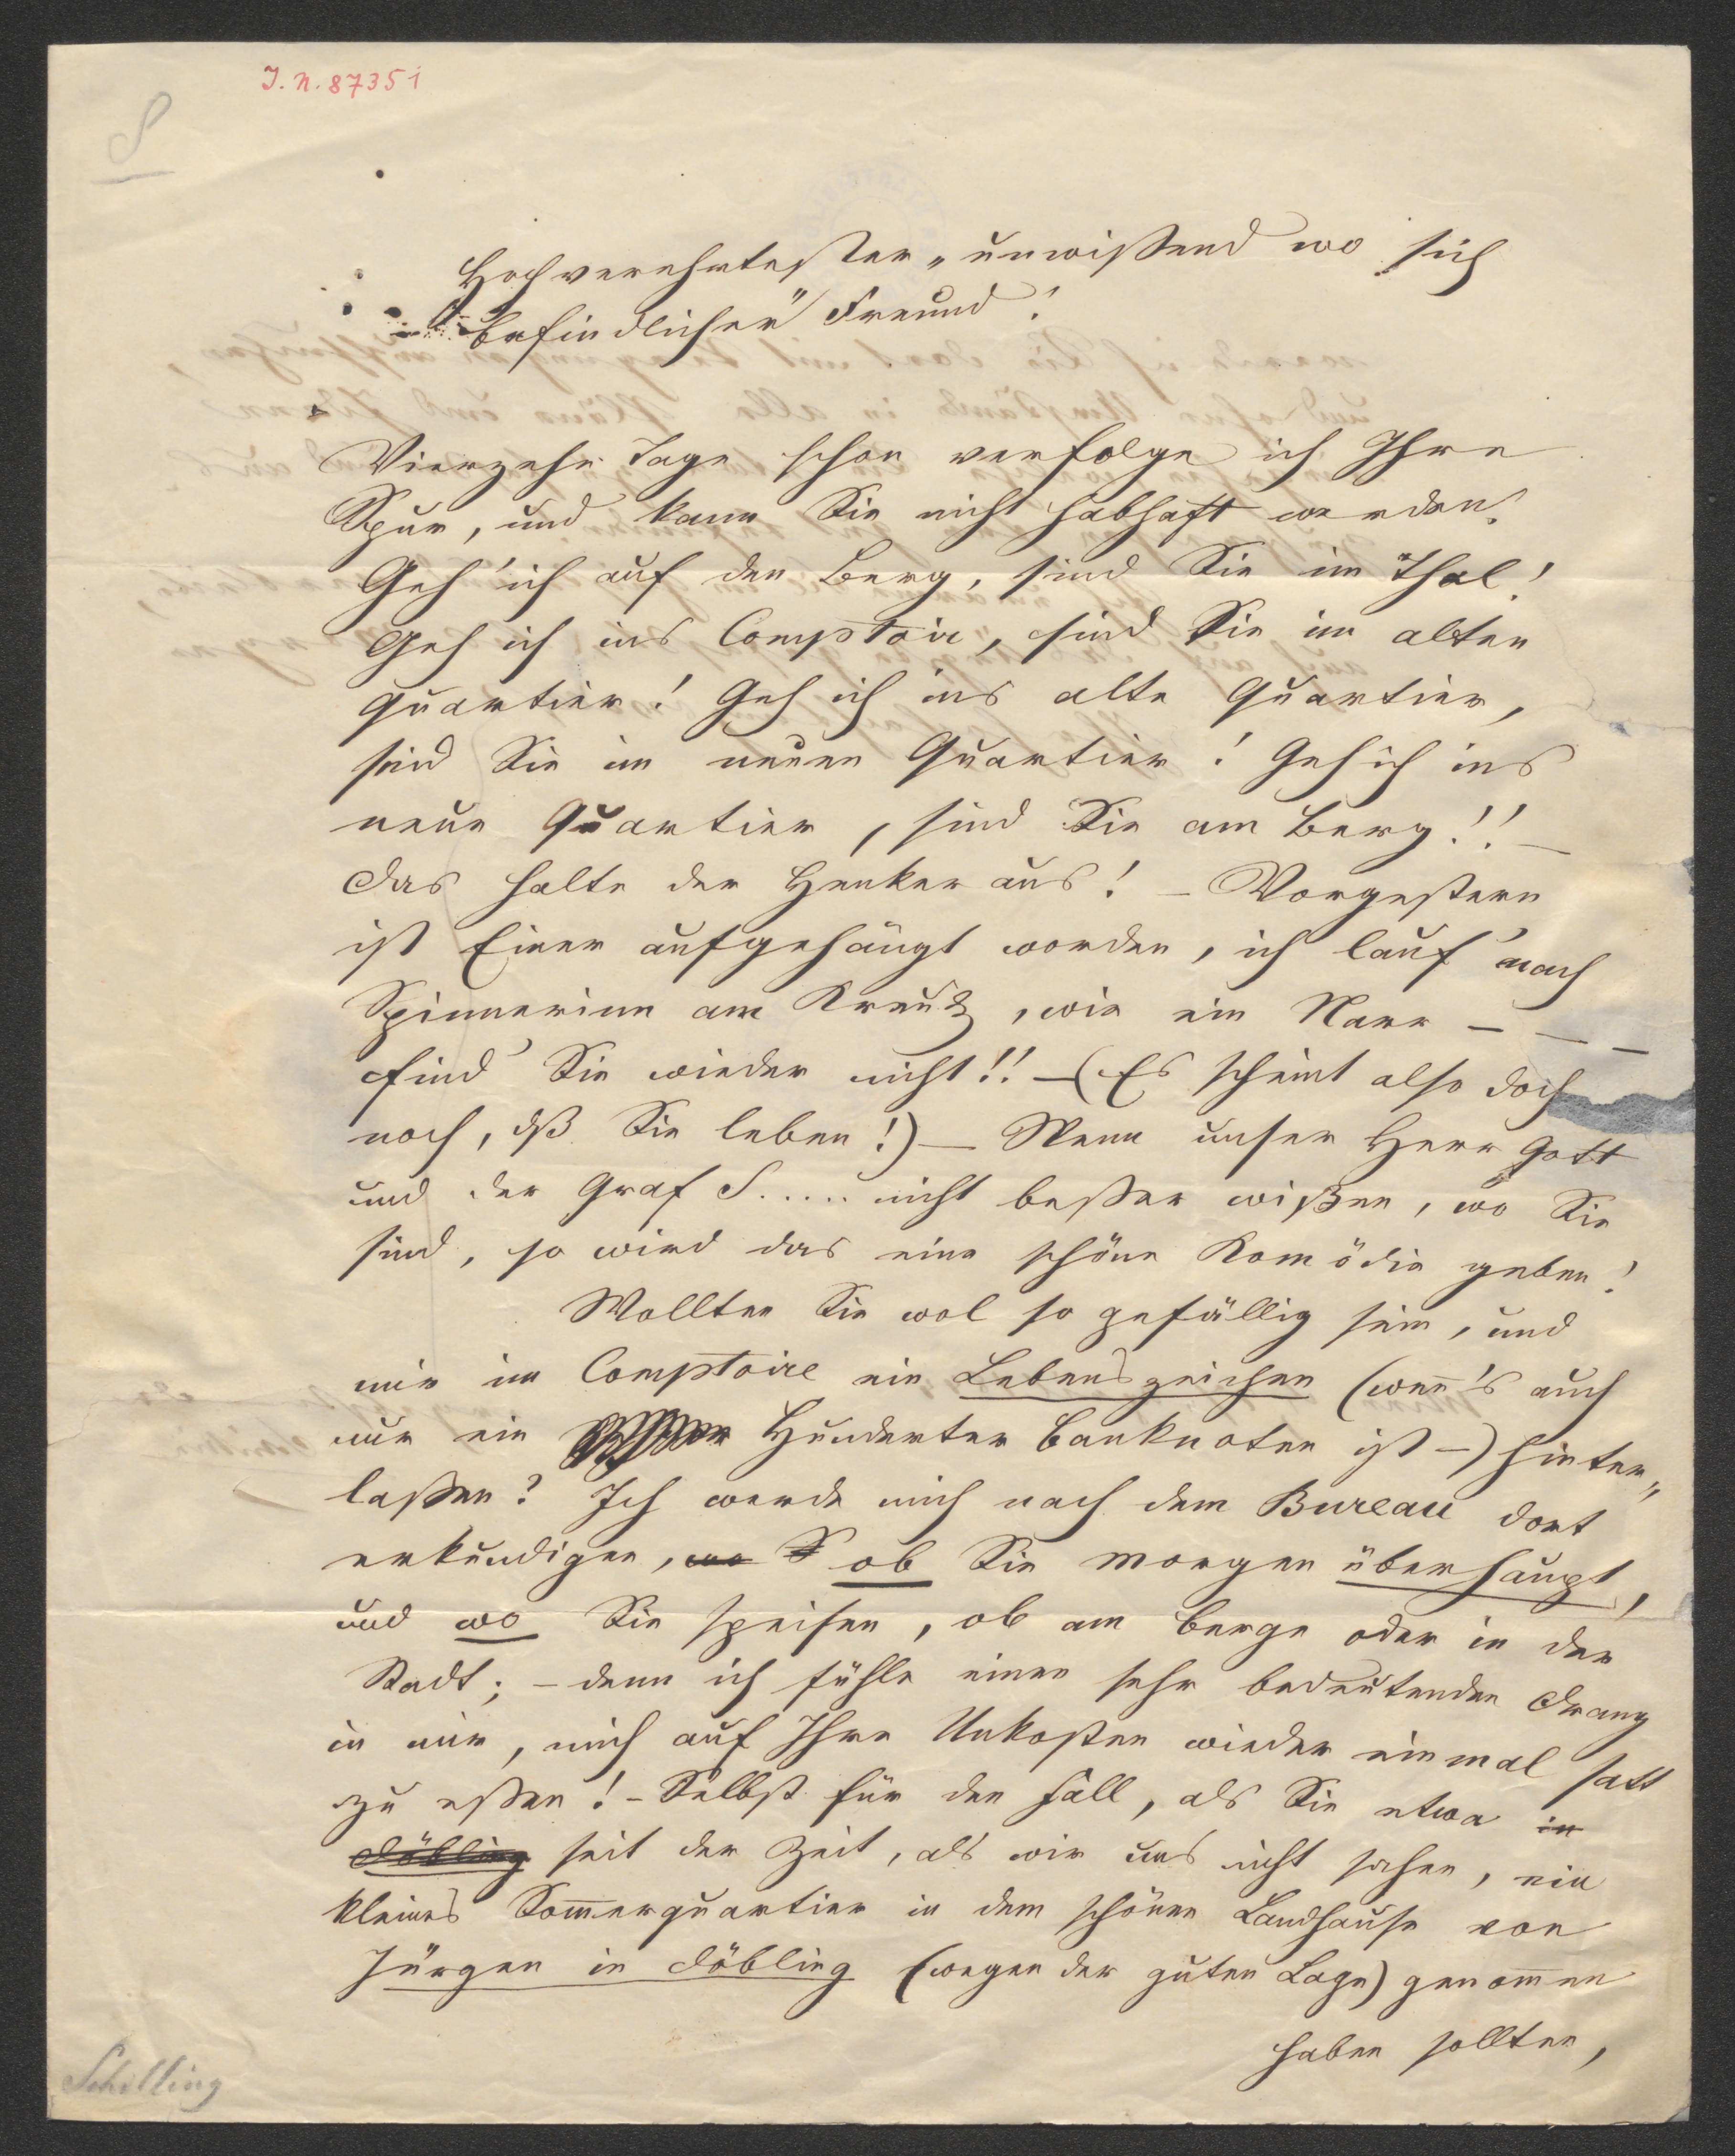 J.N. 87351
8
Hochverehrtester „unwißend wo sich
befindlicher" Freund!
Vierzehn Tage schon verfolge ich Ihre
Spur, und kann Sie nicht habhaft werden!
Geh' ich auf den Berg, sind Sie im Thal!
Geh ich ins Comptoir, sind Sie im alten
Quartier! Geh ich ins alte Quartier,
sind Sie im neuen Quartier! Geh ich ins
neue Quartier, sind Sie am Berg!! –
das halte der Henker aus! – Vorgestern
ist Einer aufgehängt worden, ich lauf' nach
Spinnerinn am Kreutz, wie ein Narr – – –
find' Sie wieder nicht!! – (Es scheint also doch
noch, dß Sie leben!) – Wenn unser Herr Gott
und der Graf S..... nicht beßer wißen, wo Sie
sind, so wird das eine schöne Komödie geben!
Wollten Sie wol so gefällig sein, und
mir im Comptoire ein Lebenszeichen (wen̄'s auch
nur ein Hunderter Banknoten ist –) hinter„
laßen? Ich werde mich nach dem Bureau dort
erkundigen, wo S ob Sie morgen überhaupt,
und wo Sie speisen, ob am Berge oder in der
Stadt; – denn ich fühle einen sehr bedeutenden Drang
in mir, mich auf Ihre Unkosten wieder einmal satt
zu eßen! – Selbst für den Fall, als Sie etwa in
Döbling seit der Zeit, als wir uns nicht sahen, ein
kleines Som̄erquartier in dem schönen Landhause von
Jürgen in Döbling (wegen der guten Lage) genom̄en
haben sollten,
Schilling